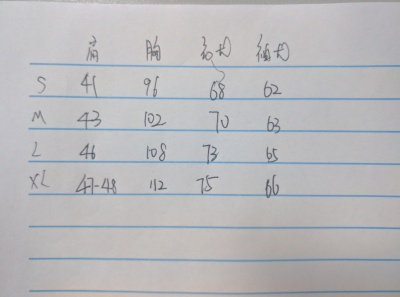 肩 胸
S 41 96 68 62
M 43 102 70 63
L 46 108 73 65
XL 47-48 112 75 66